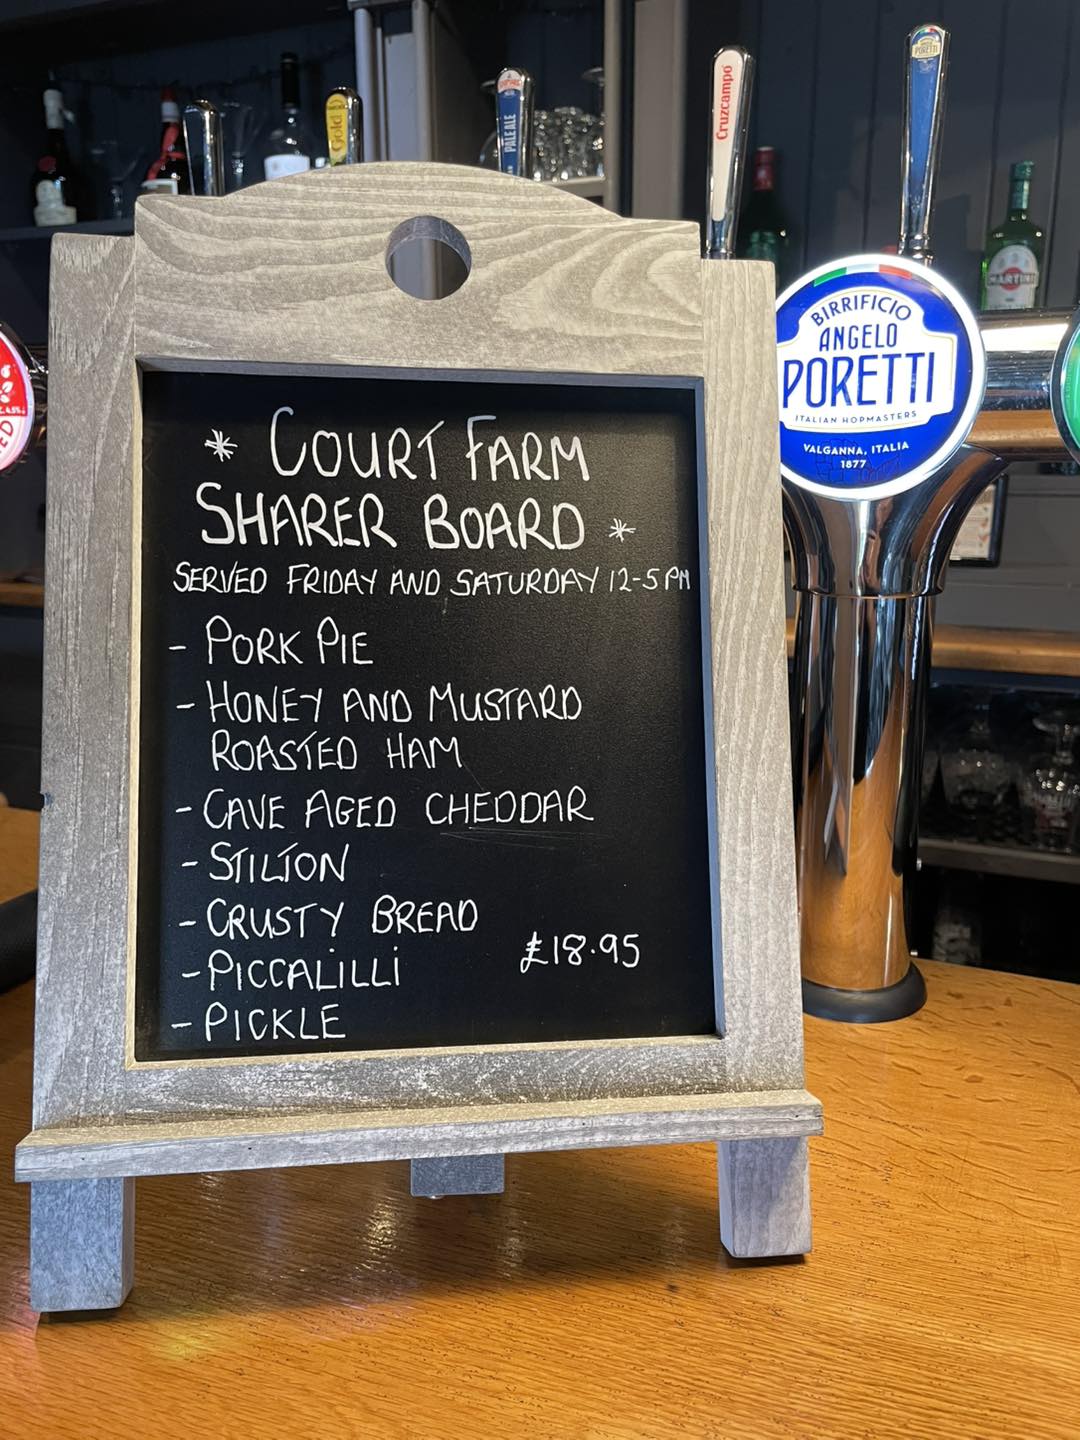 Gold
PALE ALE
Cruzcampo
PORETTI
MARTINI
BIRRIFICIO
ANGELO
PORETTI
ITALIAN HOPMASTERS
VALGANNA, ITALIA
1877
* COURT FARM
SHARER BOARD *
SERVED FRIDAY AND SATURDAY 12-5PM
- PORK PIE
- HONEY AND MUSTARD
ROASTED HAM
- CAVE AGED CHEDDAR
- STILTON
- CRUSTY BREAD
- PICCALILLI
- PICKLE
£18.95